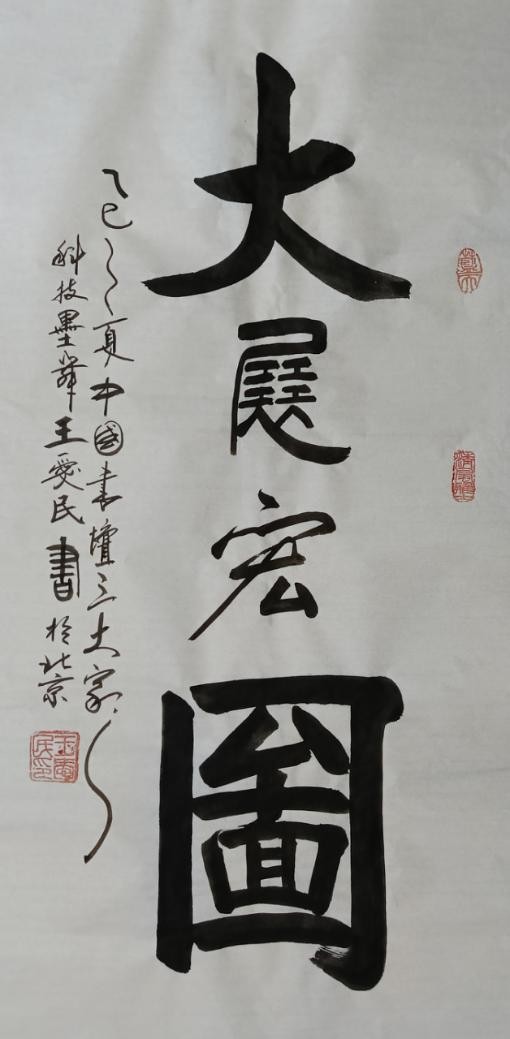 大展宏圖
乙巳之夏中國書壇三大家之一
科技墨 王愛民書於北京
王愛民印